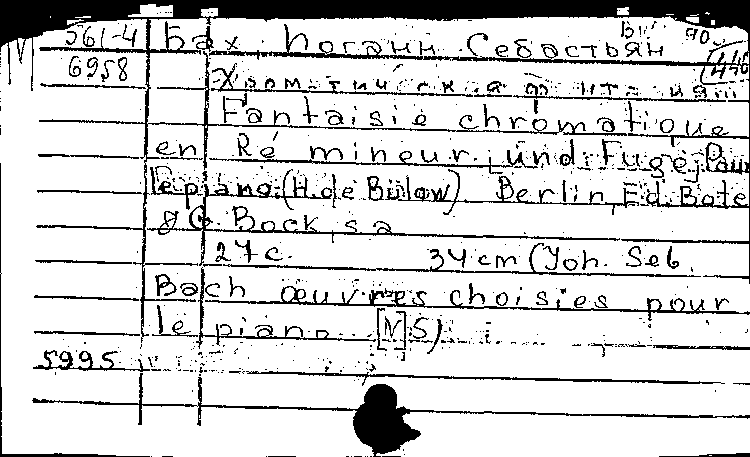 561-4 Бах, Иоганн Себастьян
6958
Fantaisie chromatique
en Ré mineur. [und Fuge] Pour
le piano (H. de Bülow). Berlin, Ed. Bote
& G. Bock, s a
27 c. 34 cm (Joh. Seb.
Bach œuvres choisies pour
le piano [N 5)
5995